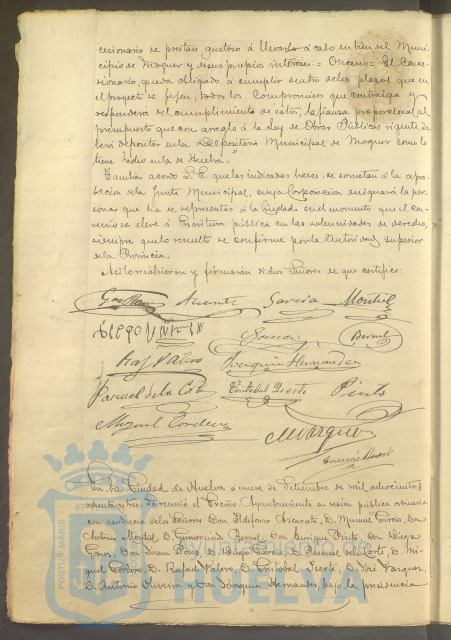 cesionario se prestase gustoso á llevarlo á cabo en bien del Muni-
cipio de Moguer y de sus propios intereses = Onceno = El Conce-
sionario, queda obligado á cumplir dentro de los plazos que en
el proyecto se fijen, todos los compromisos que contraiga y
responderá del cumplimiento de estos, la fianza proporcional al
presupuesto que con arreglo á la Ley de Obras Públicas vigente, de-
berá depositar en la Depositaría Municipal de Moguer como lo
tiene hecho en la de Huelva.
Tambien acordó S.E. que las indicadas bases, se sometan á la apro-
bacion de la Junta Municipal, cuya Corporacion designará la per-
sona que ha de representar á la Ciudad en el momento que el Con-
venio se eleve á Escritura pública con las solemnidades de derecho,
siempre que lo resuelto se confirme por la Autoridad superior
de la Provincia.
Así lo resolvieron y firmarán dichos Señores de que certifico:
Garcia Montiel
Diego
Bernal
Raf Valero Joaquin Hernandez
Manuel de la Corte Cristobal Pinto
Miguel Cordero
M Vazquez
En la Ciudad de Huelva á once de Setiembre de mil ochocientos
ochenta y tres: Se reunió el Excmo Ayuntamiento en sesion pública ordinaria
con asistencia de los Señores Don Ildefonso D. Manuel Garcia, Don
Antonio Montiel, D. Gumersindo Bernal, Don Enrique Pinto, Don Diego
Don Juan D. Diego Garcia, D. Manuel de la Corte, D. Mi-
guel Cordero, D. Rafael Valero, D. Cristobal D. José Vazquez,
D. Antonio Oliveira y Don Joaquin Hernandez, bajo la presidencia
PORTUS MARIS
HUELVA